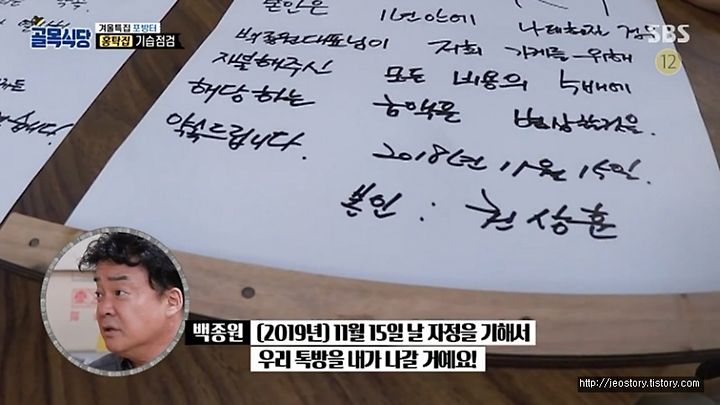 골목식당
겨울특집 포방터
홍탁집 기습점검
SBS
12
본인은 1년 안에 나태해질
백종원대표님이 저희 가게를 위해
지불해주신 모든 비용의 5배에
해당하는 금액을 변상할것을
약속드립니다.
2018년 11월 15일.
본인 : 권상훈
백종원
(2019년) 11월 15일 날 자정을 기해서
우리 톡방을 내가 나갈 거예요!
http://jeostory.tistory.com